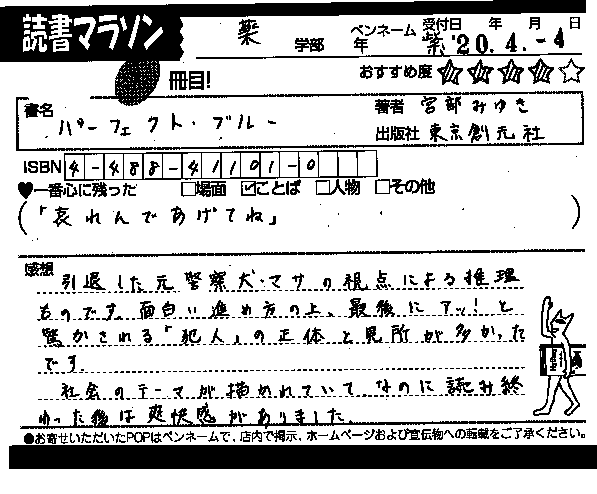 読書マラソン
薬 学部 年 ペンネーム 紫 受付日 年 月 日
'20.4.-4
冊目!
おすすめ度 ★★★★☆
書名 パーフェクト・ブルー
著者 宮部みゆき
出版社 東京創元社
ISBN 4-488-41101-0
♥一番心に残った □場面 ☑ことば □人物 □その他
(「哀れんであげてね」)
感想
引退した元警察犬・マサの視点による推理
ものです。面白い進め方の上、最後にアッ!と
驚かされる「犯人」の正体と見所が多かった
です。
社会のテーマが描かれていて、なのに読み終
わった後は爽快感がありました。
●お寄せいただいたPOPはペンネームで、店内で掲示、ホームページおよび宣伝物への転載をご了承ください。